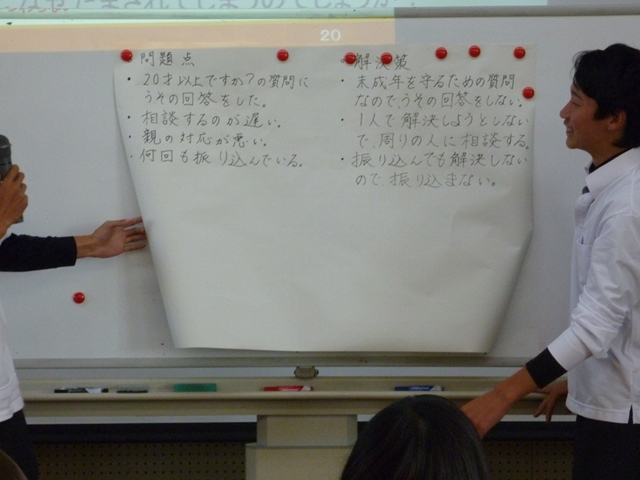 なぜだまされてしまうのでしょうか。
20
問題点
・20才以上ですか?の質問に
うその回答をした。
・相談するのが遅い。
・親の対応が悪い。
・何回も振り込んでいる。
解決策
・未成年を守るための質問
なので、うその回答をしない。
・1人で解決しようとしない
で、周りの人に相談する。
・振り込んでも解決しない
ので、振り込まない。